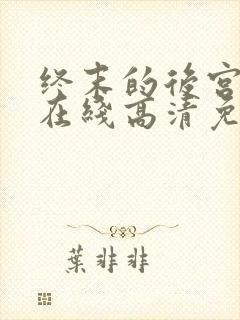 终末的後宫
在綫高清免
葉非非